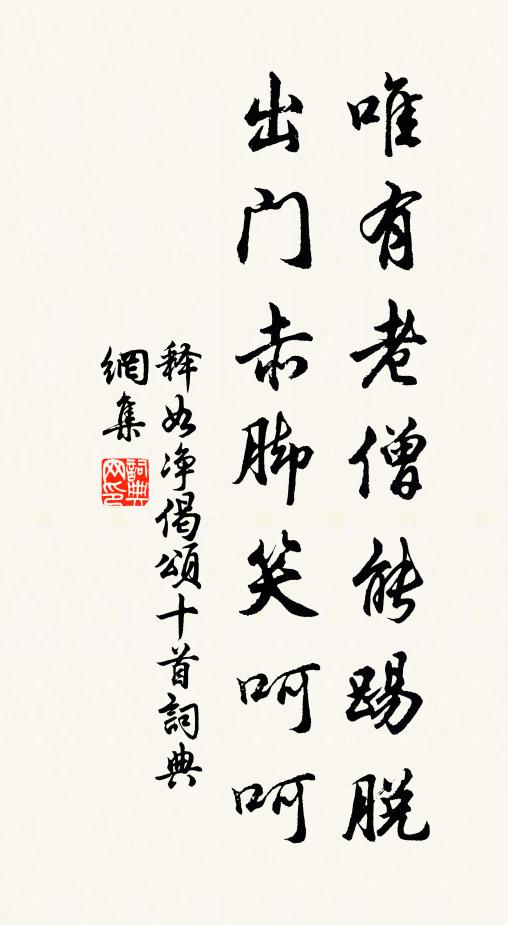 唯有老僧能踢脱
出门赤脚笑呵呵
释如净偈頌十首詞典
網集
詞典网印